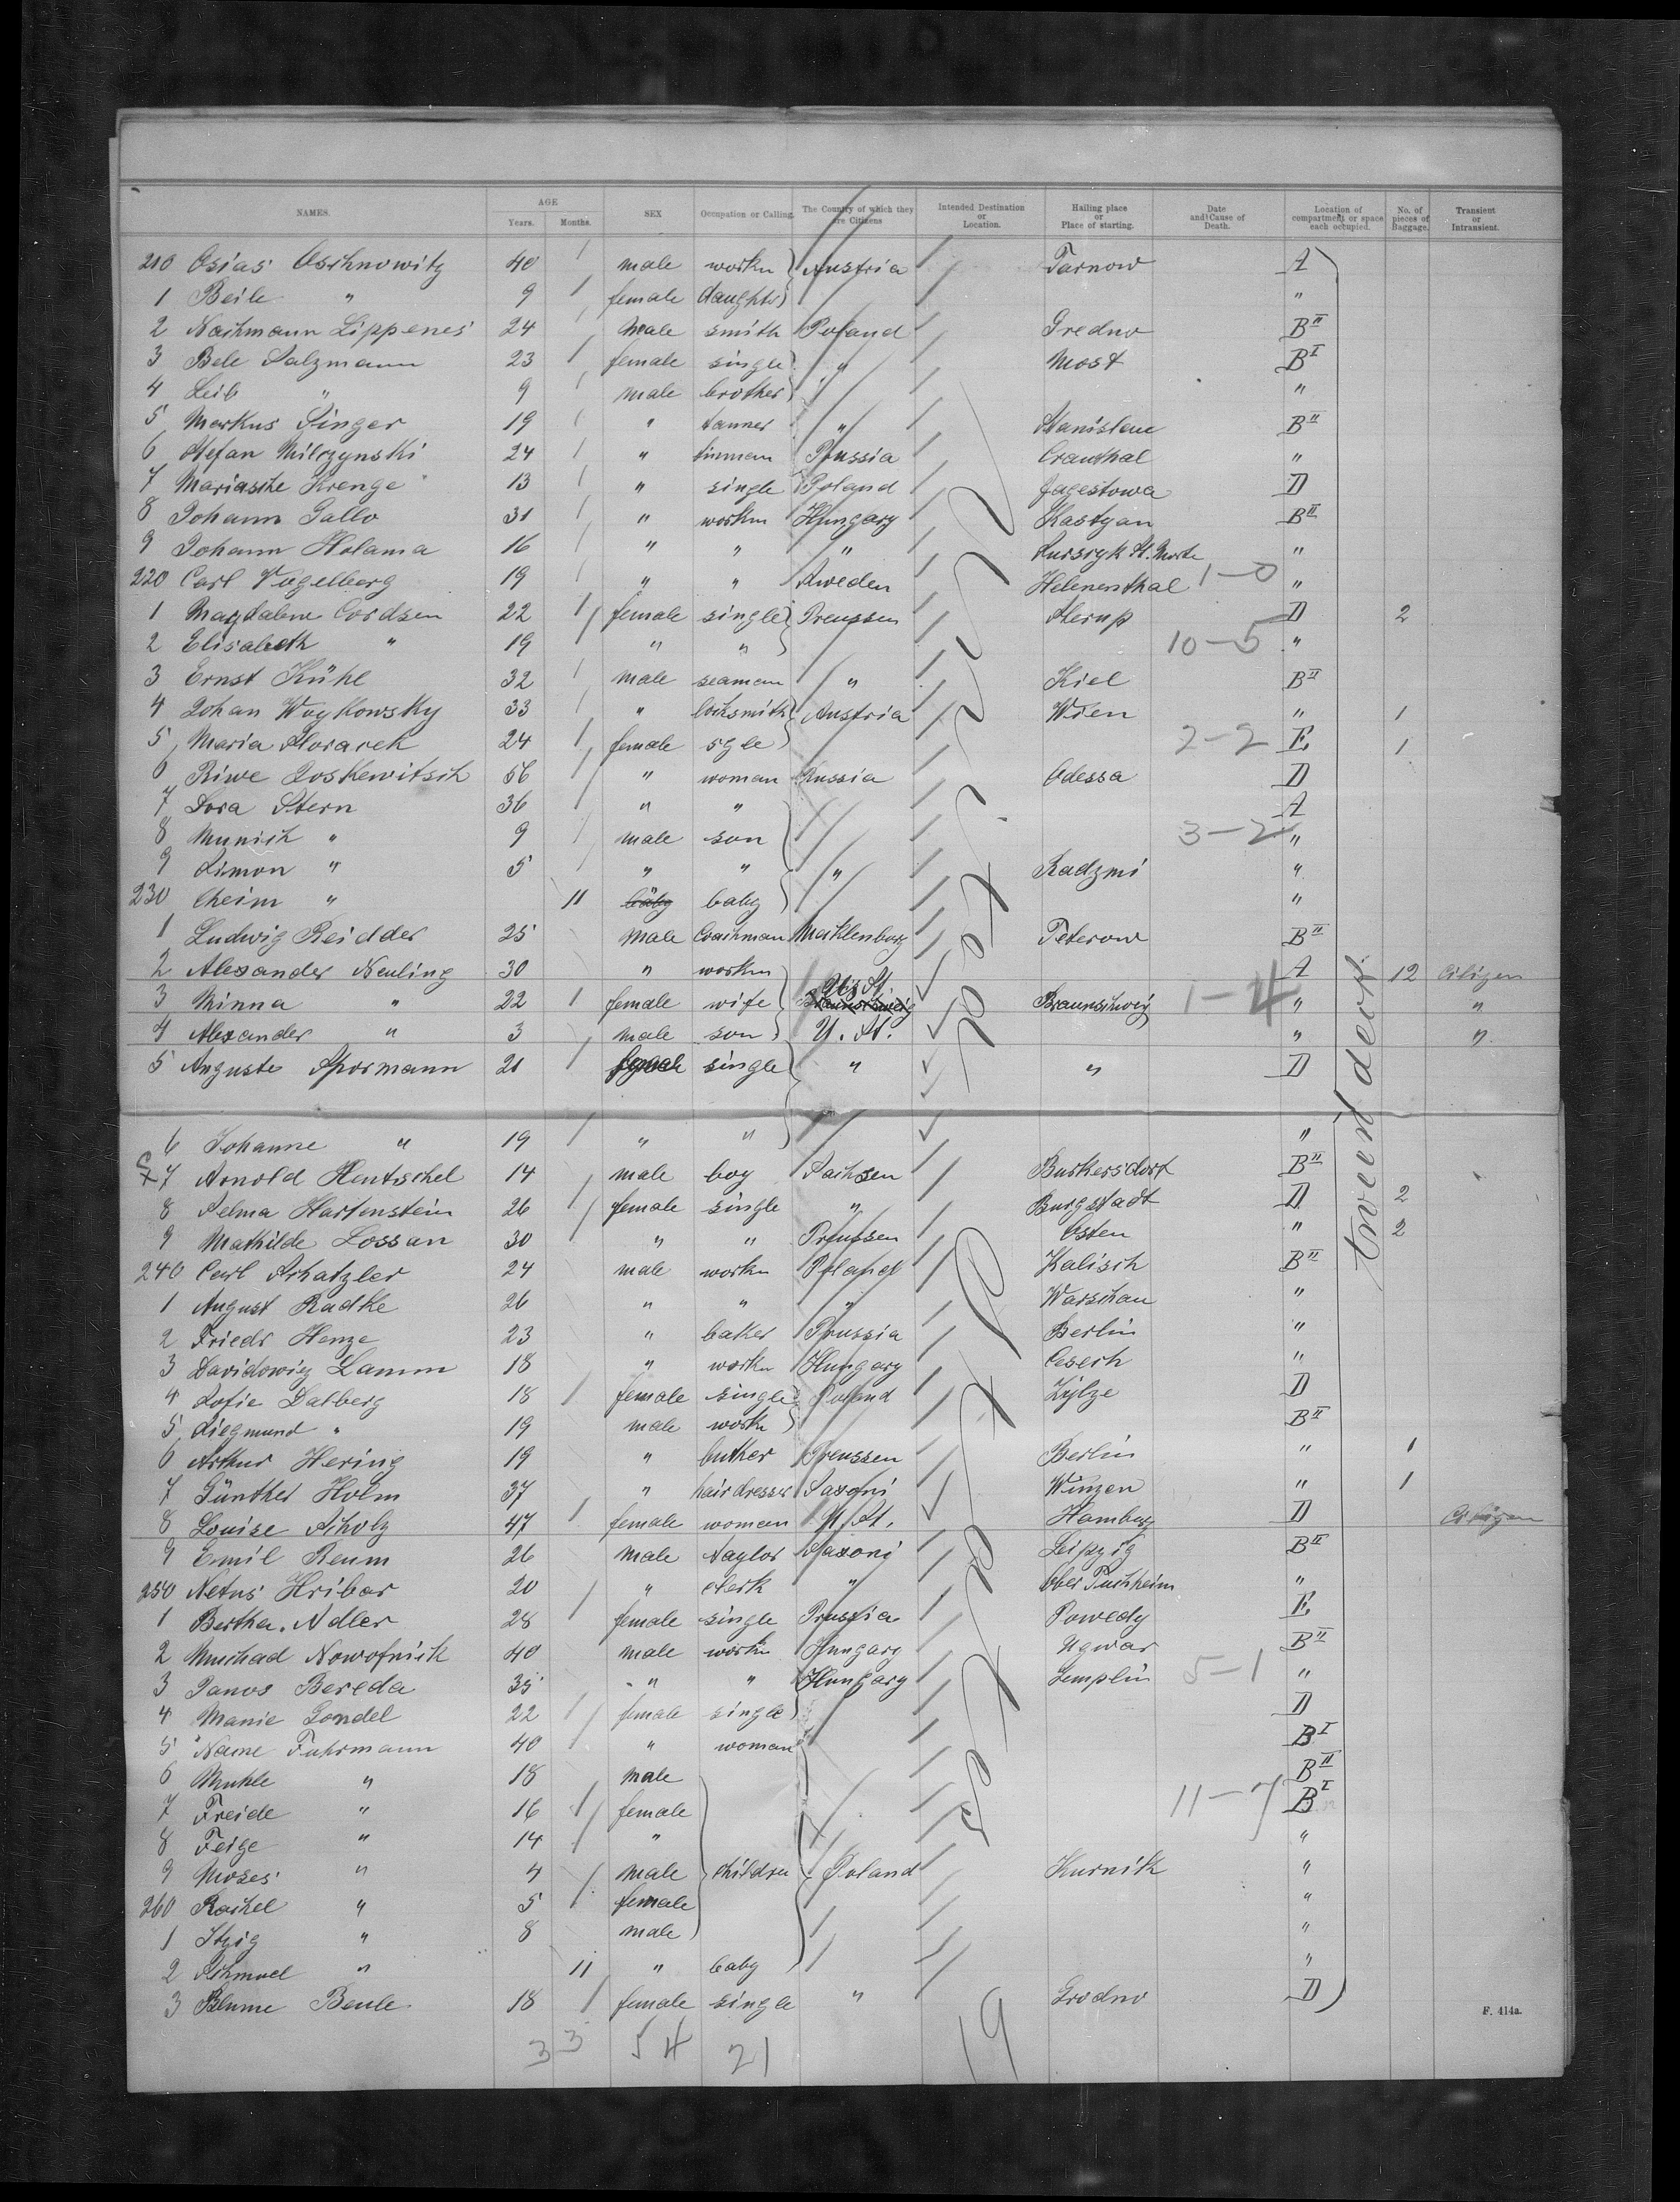 NAMES. AGE Years. Months. SEX Occupation or Calling. The Country of which they are Citizens Intended Destination or Location. Hailing place or Place of starting. Date and Cause of Death. Location of compartment or space each occupied. No. of pieces of Baggage. Transient or Intransient.
210 Osias Oschnowitz 40 male workn Austria Tarnow A
1 Beile " 9 female daughter "
2 Nachmann Lippenes 24 male smith Poland Gredno B II
3 Bele Salzmann 23 female single " Most B I
4 Leib " 9 male brother "
5 Markus Singer 19 " tanner " Stanislau B II
6 Stefan Milczynski 24 " tinman Prussia Cransthal "
7 Mariasche Krenge 13 " single Poland Jagestowa D
8 Johann Gallo 31 " workm Hungary Kastyan B II
9 Johann Holama 16 " " " "
220 Carl Vogelberg 19 " " Sweden Helenenthal 1-0 "
1 Magdalene Cordsen 22 female single Preussen Sterup D 2
2 Elisabeth " 19 " " 10-5 "
3 Ernst Kühl 32 male seaman " Kiel B II
4 Johan Woykowsky 33 " locksmith Austria Wien " 1
5 Maria Horacek 24 female sgle 2-2 E 1
6 Riwe Joskewitsch 56 " woman Russia Odessa D
7 Sora Stern 36 " " A
8 Munisch " 9 male son 3-2 "
9 Simon " 5 " " " Radzmi "
230 Cheim " 11 baby baby "
1 Ludwig Reidder 25 male Coachman Mecklenburg Peterow B II
2 Alexander Neuling 30 " workm A 12 Citizen
3 Minna " 22 female wife U. St. Braunschweig Braunschweig 1-4 " "
4 Alexander " 3 male son U. St. " "
5 Auguste Spormann 21 female single " " D
6 Johanne " 19 " " "
7 Arnold Hentschel 14 male boy Sachsen Burkersdorf B II
8 Selma Hartenstein 26 female single " Burgstadt D 2
9 Mathilde Lossan 30 " " Preussen Osten " 2
240 Carl Schatzler 24 male workn Poland Kalisch B II
1 August Radke 26 " " " Warschau "
2 Friedr Henze 23 " baker Prussia Berlin "
3 Davidowiz Lamm 18 " workn Hungary Cserh "
4 Sofie Dalberg 18 female single Poland Zylze D
5 Siegmund " 19 male workn B II
6 Arthur Hering 19 " butker Preussen Berlin " 1
7 Günther Holm 37 " hairdresser Saxoni Winzen " 1
8 Louise Scholz 47 female woman U. St. Hamburg D Citizen
9 Emil Reum 26 male taylor Saxoni Leipzig B II
250 Netus Hribar 20 " clerk " Ober Puchheim "
1 Bertha Adler 28 female single Prussia Powedy E
2 Muchad Nowofnick 40 male workn Hungary Ugwar B II
3 Janos Bereda 35 " " Hungary Semplin 5-1 "
4 Manie Gondel 22 female single D
5 Name Fuhrmann 40 " woman B I
6 Muhle " 18 male B II
7 Freide " 16 female 11-7 B I
8 Feige " 14 " "
9 Moses " 4 male children Poland Kurnik "
260 Rachel " 5 female "
1 Itzig " 8 male "
2 Schmuel " 11 " baby "
3 Blume Beule 18 female single " Grodno D
tween deck
33 54 21 19
F. 414a.